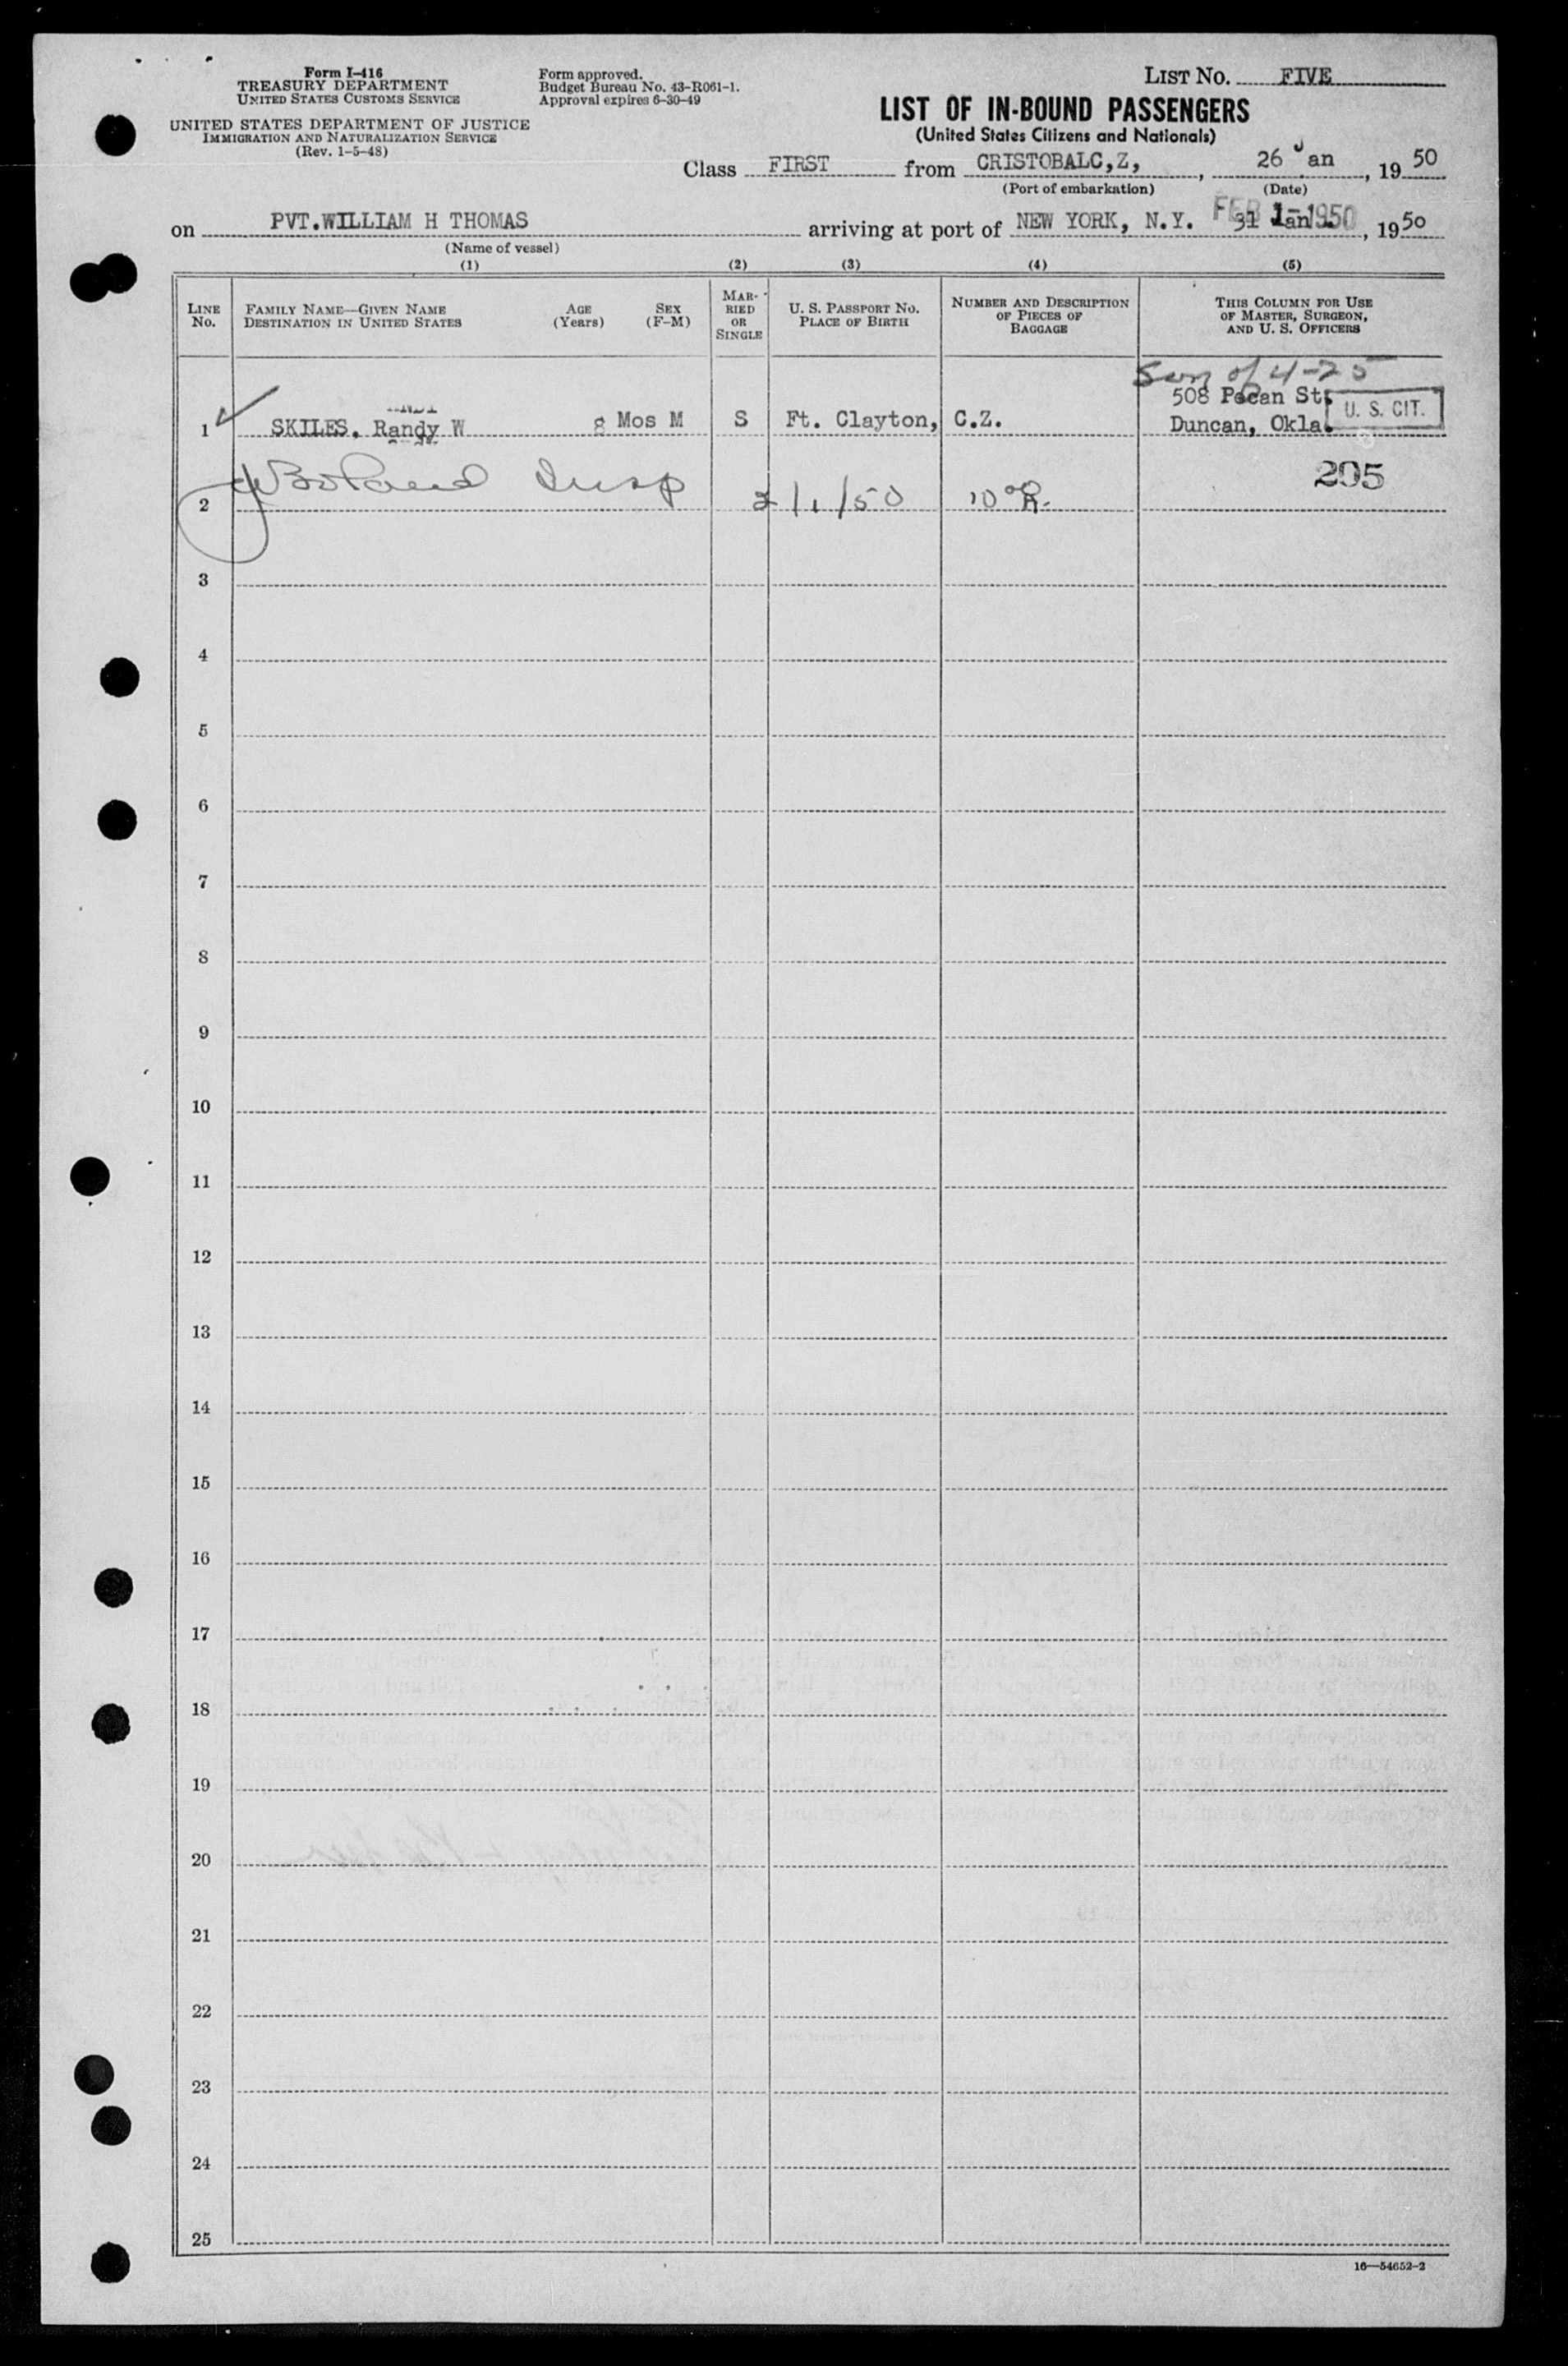 Form I-416
TREASURY DEPARTMENT
UNITED STATES CUSTOMS SERVICE
UNITED STATES DEPARTMENT OF JUSTICE
IMMIGRATION AND NATURALIZATION SERVICE
(Rev. 1-5-48)
Form approved.
Budget Bureau No. 43-R061-1.
Approval expires 6-30-49
LIST NO. FIVE
LIST OF IN-BOUND PASSENGERS
(United States Citizens and Nationals)
Class FIRST from CRISTOBALC,Z, , 26 Jan , 19 50
(Port of embarkation) (Date)
on PVT.WILLIAM H THOMAS arriving at port of NEW YORK, N.Y. 31 Jan FEB 1-1950 , 19 50
(Name of vessel)
(1) (2) (3) (4) (5)
LINE No. FAMILY NAME—GIVEN NAME DESTINATION IN UNITED STATES AGE (Years) SEX (F-M) MARRIED OR SINGLE U. S. PASSPORT NO. PLACE OF BIRTH NUMBER AND DESCRIPTION OF PIECES OF BAGGAGE THIS COLUMN FOR USE OF MASTER, SURGEON, AND U. S. OFFICERS
Son of 4-25
508 Pecan St.
1 SKILES, Randy W 8 Mos M S Ft. Clayton, C.Z. Duncan, Okla. U. S. CIT.
295
2 Insp 2/1/50
3
4
5
6
7
8
9
10
11
12
13
14
15
16
17
18
19
20
21
22
23
24
25
16—54652-2